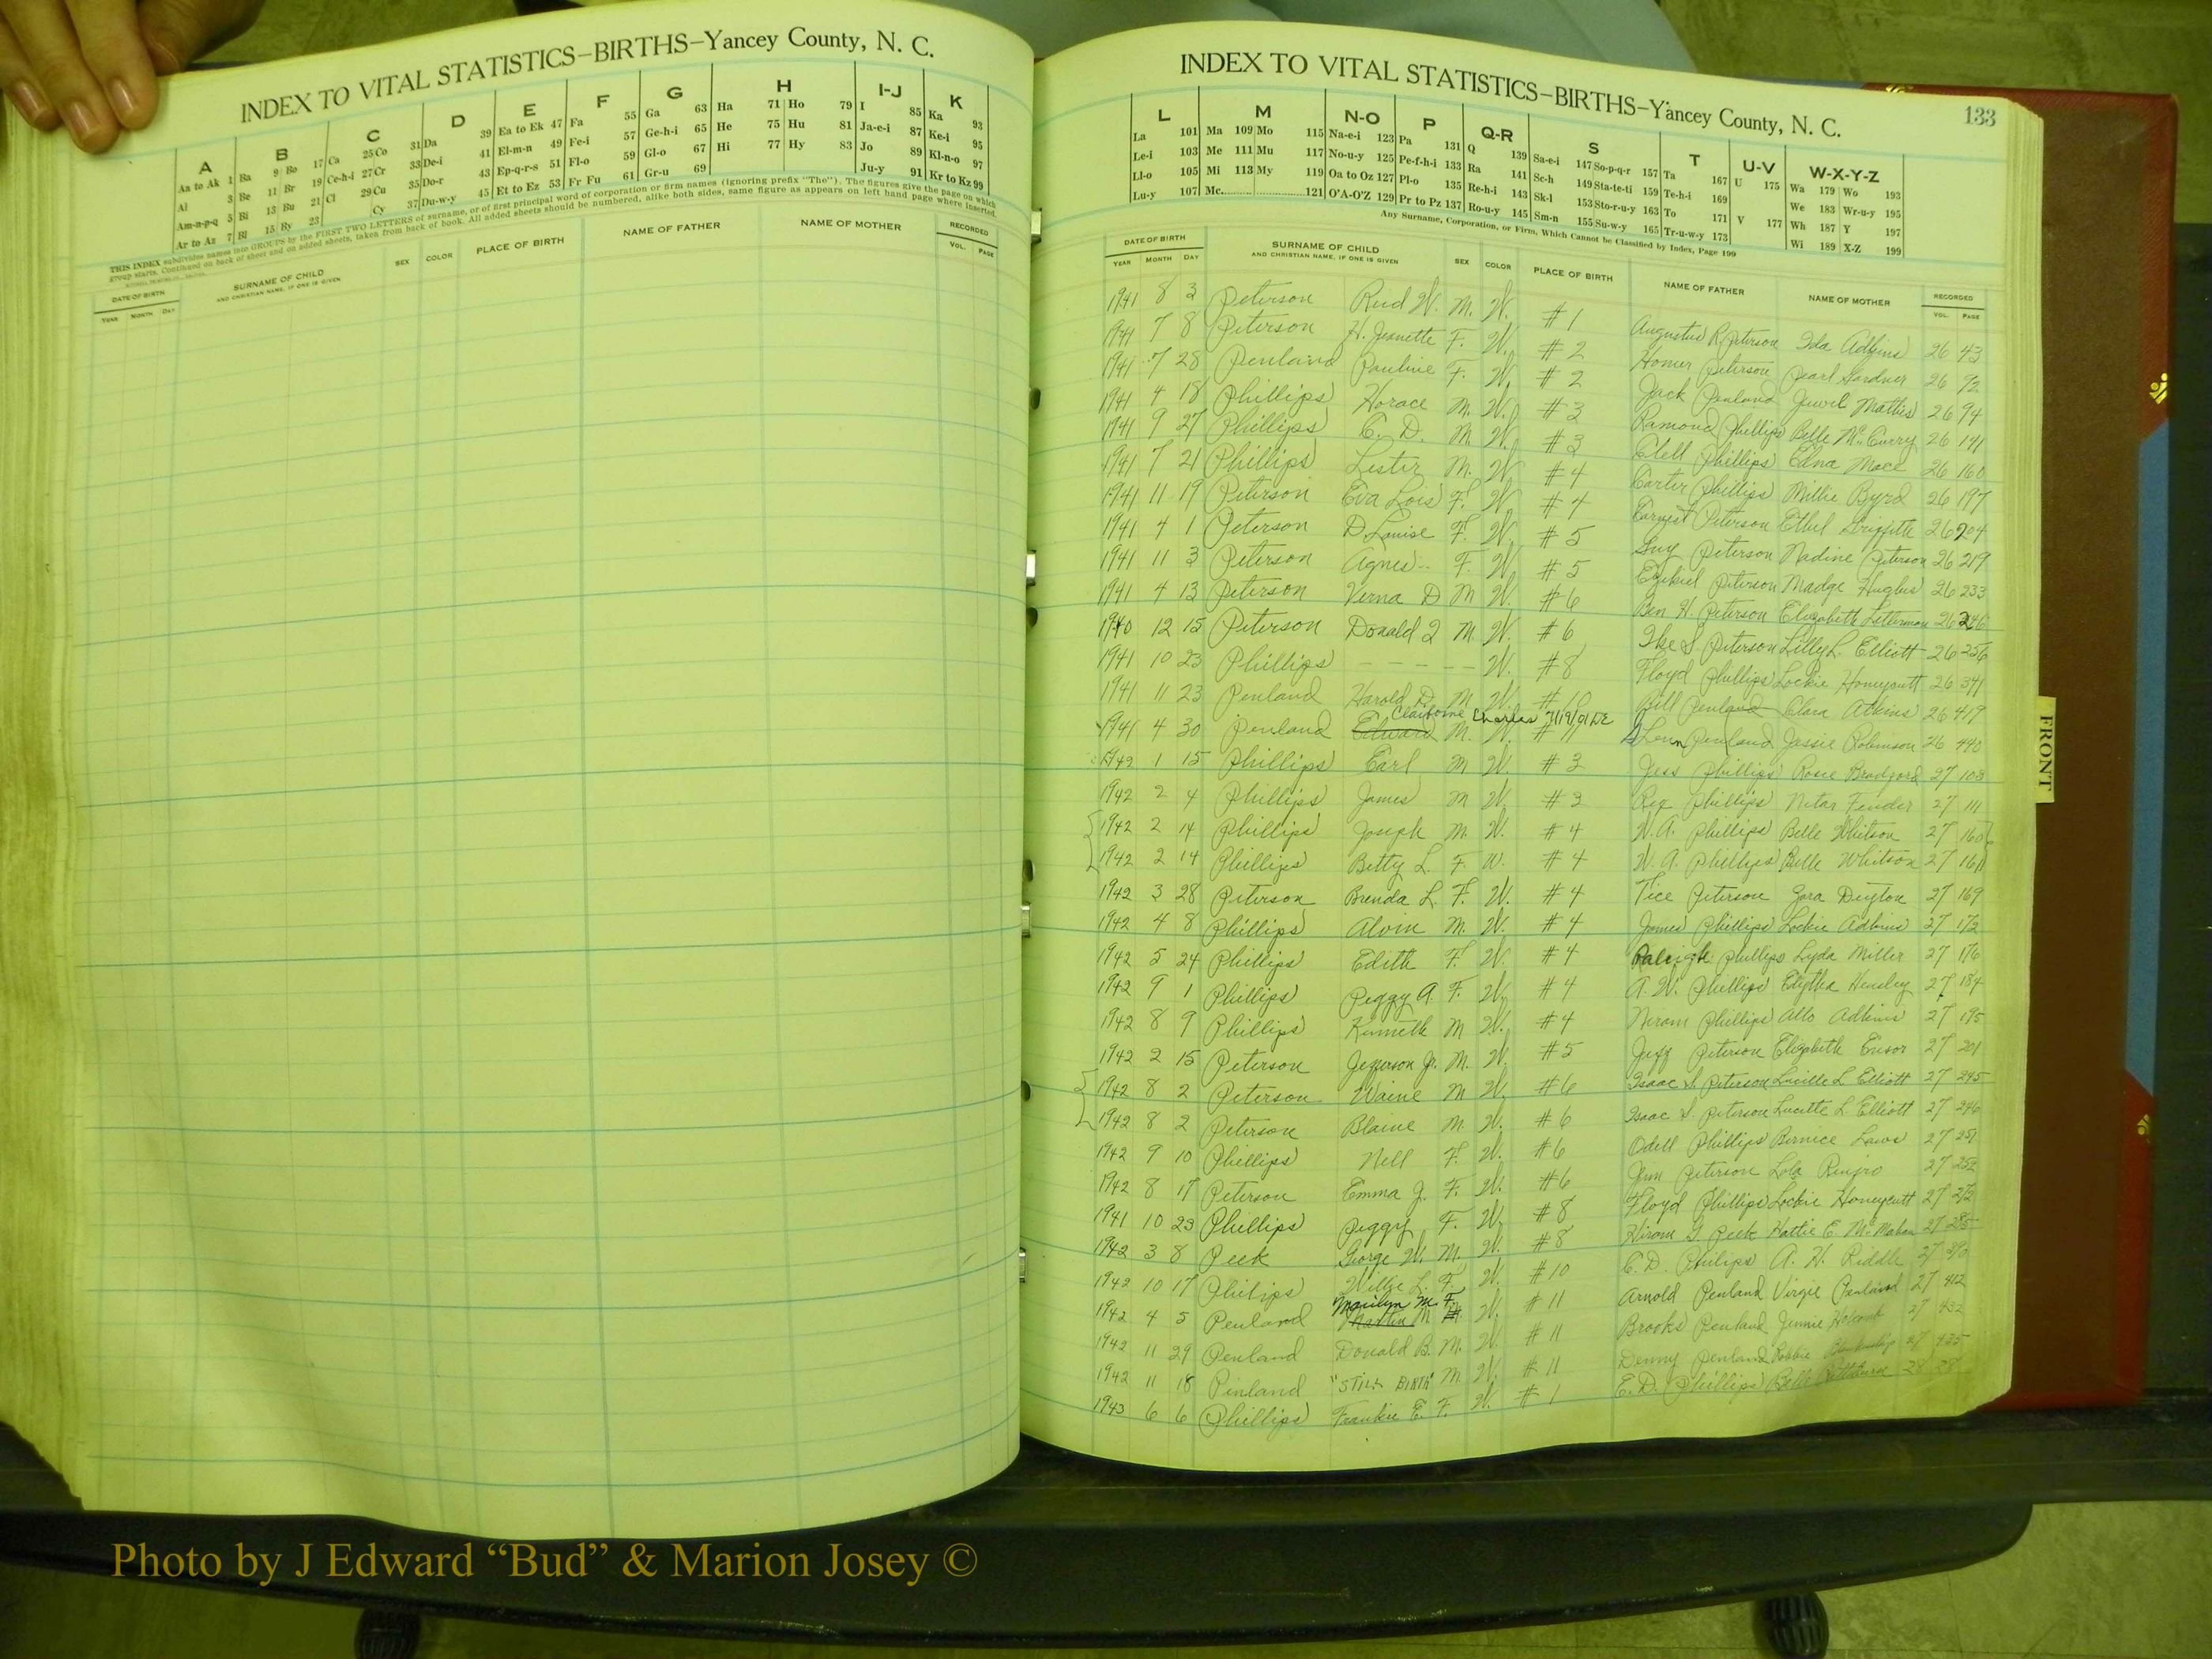 INDEX TO VITAL STATISTICS–BIRTHS–Yancey County, N. C.
A B C D E F G H I-J K
Aa to Ak 1 Ba 9 Bo 17 Ca 25 Co 31 Da 39 Ea to Ek 47 Fa 55 Ga 63 Ha 71 Ho 79 I 85 Ka 93
Al 3 Be 11 Br 19 Ce-h-i 27 Cr 33 De-i 41 El-m-n 49 Fe-i 57 Ge-h-i 65 He 75 Hu 81 Ja-e-i 87 Ke-i 95
Am-n-p-q 5 Bi 13 Bu 21 Cl 29 Cu 35 Do-r 43 Ep-q-r-s 51 Fl-o 59 Gl-o 67 Hi 77 Hy 83 Jo 89 Kl-n-o 97
Ar to Az 7 Bl 15 By 23 Cy 37 Du-w-y 45 Et to Ez 53 Fr Fu 61 Gr-u 69 Ju-y 91 Kr to Kz 99
THIS INDEX subdivides names into GROUPS by the FIRST TWO LETTERS of surname, or of first principal word of corporation or firm names (Ignoring prefix "The"). The figures give the page on which
group starts. Continued on back of sheet and on added sheets, taken from back of book. All added sheets should be numbered, alike both sides, same figure as appears on left hand page where inserted.
DATE OF BIRTH SURNAME OF CHILD SEX COLOR PLACE OF BIRTH NAME OF FATHER NAME OF MOTHER RECORDED
YEAR MONTH DAY AND CHRISTIAN NAME, IF ONE IS GIVEN VOL. PAGE
INDEX TO VITAL STATISTICS–BIRTHS–Yancey County, N. C. 133
L M N-O P Q-R S T U-V W-X-Y-Z
La 101 Ma 109 Mo 115 Na-e-i 123 Pa 131 Q 139 Sa-e-i 147 So-p-q-r 157 Ta 167 U 175 Wa 179 Wo 193
Le-i 103 Me 111 Mu 117 No-u-y 125 Pe-f-h-i 133 Ra 141 Sc-h 149 Sta-te-ti 159 Te-h-i 169 We 183 Wr-u-y 195
Ll-o 105 Mi 113 My 119 Oa to Oz 127 Pl-o 135 Re-h-i 143 Sk-l 153 Sto-r-u-y 163 To 171 V 177 Wh 187 Y 197
Lu-y 107 Mc 121 O'A-O'Z 129 Pr to Pz 137 Ro-u-y 145 Sm-n 155 Su-w-y 165 Tr-u-w-y 173 Wi 189 X-Z 199
Any Surname, Corporation, or Firm, Which Cannot be Classified by Index, Page 199
DATE OF BIRTH SURNAME OF CHILD SEX COLOR PLACE OF BIRTH NAME OF FATHER NAME OF MOTHER RECORDED
YEAR MONTH DAY AND CHRISTIAN NAME, IF ONE IS GIVEN VOL. PAGE
1941 8 3 Peterson Reid W. M. W. #1 Augustus R Peterson Ida Adkins 26 43
1941 7 8 Peterson H. Jeanette F. W. #2 Homer Peterson Pearl Gardner 26 72
1941 7 28 Penland Pauline F. W. #2 Jack Penland Jewel Mathis 26 94
1941 4 18 Phillips Horace M. W. #3 Ramond Phillips Belle McCurry 26 141
1941 9 27 Phillips C. D. M. W. #3 Clell Phillips Edna Mace 26 160
1941 7 21 Phillips Lester M. W. #4 Carter Phillips Millie Byrd 26 197
1941 11 19 Peterson Eva Lois F. W. #4 Earnest Peterson Ethel Griffith 26 204
1941 4 1 Peterson D. Louise F. W. #5 Guy Peterson Nadine Peterson 26 219
1941 11 3 Peterson Agnes F. W. #5 Ezekiel Peterson Madge Hughes 26 233
1941 4 13 Peterson Verna D M W. #6 Ben H. Peterson Elizabeth Letterman 26 246
1940 12 15 Peterson Donald M. W. #6 Ike S. Peterson Lilly L. Elliott 26 256
1941 10 23 Phillips – – – – – W. #8 Floyd Phillips Lockie Honeycutt 26 341
1941 11 23 Penland Harold D. M. W. #10 Bill Penland Clara Atkins 26 419
Claiborne Charles 7/19/01
1941 4 30 Penland Edward M. W. #11 Penland Jessie Robinson 26 440
1942 1 15 Phillips Earl M W. #3 Jess Phillips Rosie Bradford 27 103
1942 2 4 Phillips James M W. #3 Rex Phillips Fender 27 111
1942 2 14 Phillips Joseph M. W. #4 W. A. Phillips Belle Whitson 27 160
1942 2 14 Phillips Betty L. F. W. #4 W. A. Phillips Belle Whitson 27 161
1942 3 28 Peterson Brenda L. F. W. #4 Tice Peterson Zora Deyton 27 169
1942 4 8 Phillips Alvin M. W. #4 James Phillips Lockie Adkins 27 172
1942 5 24 Phillips Edith F. W. #4 Raleigh Phillips Lyda Miller 27 176
1942 9 1 Phillips Peggy A. F. W. #4 A. W. Phillips Edytha Hensley 27 184
1942 8 9 Phillips Kenneth M W. #4 Phillips Adkins 27 195
1942 2 15 Peterson Jefferson Jr. M. W. #5 Jeff Peterson Elizabeth Ensor 27 201
1942 8 2 Peterson Waine M W. #6 Isaac S. Peterson Lucille L. Elliott 27 245
1942 8 2 Peterson Blaine M. W. #6 Isaac S. Peterson Lucille L. Elliott 27 246
1942 9 10 Phillips Nell F. W. #6 Odell Phillips Bernice Laws 27 251
1942 8 17 Peterson Emma J. F. W. #6 Jim Peterson Lola Renfro 27 252
1941 10 23 Phillips Peggy F. W. #8 Floyd Phillips Lockie Honeycutt 27 272
1942 3 8 Peek George W. M. W. #8 Hiram G. Peek Hattie E. McMahan 27 285
1942 10 17 Philips Willie L. F. W. #10 C. D. Philips A. H. Riddle 27
Marilyn M. F.
1942 4 5 Penland M. W. #11 Arnold Penland Virgie Penland 27 412
1942 11 29 Penland Donald B. M. W. #11 Brooks Penland Jennie Holcomb 27 432
1942 11 18 Penland "STILL BIRTH" M W. #11 Denny Penland 27 435
1943 6 6 Phillips Frankie E. F. W. #1 E. D. Phillips Belle 28
FRONT
Photo by J Edward “Bud” & Marion Josey ©